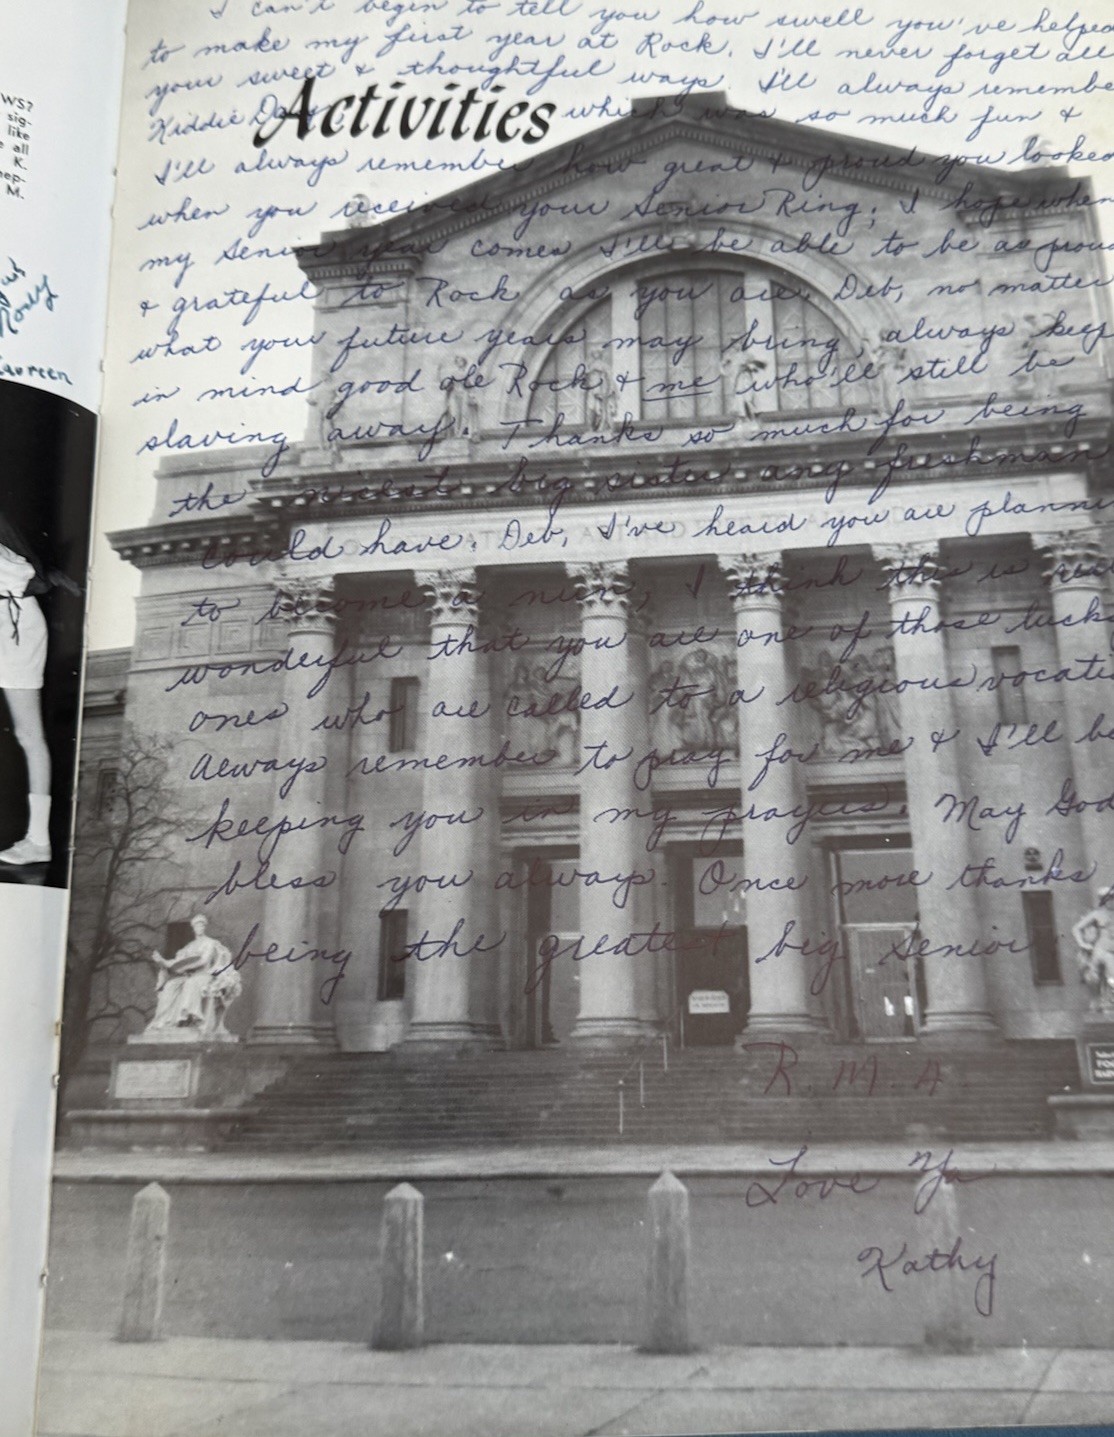 WS?
sig-
like
all
K.
M.
Maureen
I can't begin to tell you how swell you've helped
to make my first year at Rock. I'll never forget all
your sweet & thoughtful ways. I'll always remember
Kiddie Day which was so much fun &
Activities
I'll always remember how great & proud you looked
when you received your Senior Ring; I hope when
my Senior year comes I'll be able to be as proud
& grateful to Rock as you are. Deb, no matter
what your future years may bring, always keep
in mind good ole Rock & me who'll still be
slaving away. Thanks so much for being
the nicest big sister any freshman
could have. Deb, I've heard you are planni
to become a nun, I think this is
wonderful that you are one of those luck
ones who are called to a religious vocati
Always remember to pray for me & I'll be
keeping you in my prayers. May God
bless you always. Once more thanks
being the greatest big Senior
R. M. A
Love Ya
Kathy